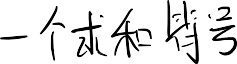 一个求和符号